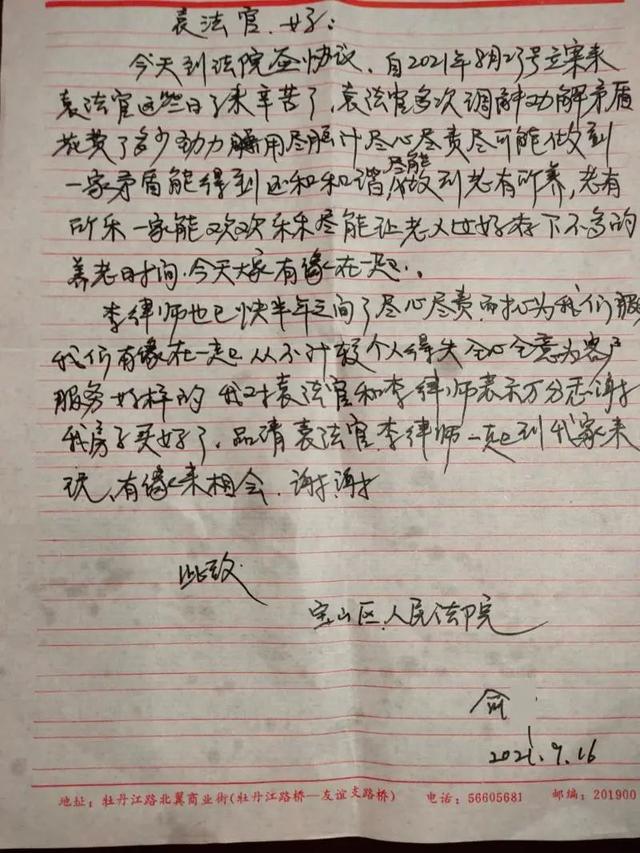 袁法官.好:
今天到法院签协议.自2021年8月27号立案来
袁法官这些日子来辛苦了,袁法官多次调解劝解矛盾
花费了多少动力脑用尽胆汁尽心尽责尽可能做到
一家矛盾能得到还和和谐尽能做到老有所养,老有
所乐一家能欢欢乐乐尽能让老人过好存下不多的
养老日时间.今天大家有缘在一起..
李律师也已快半年之间了尽心尽责耐心为我们服
我们有缘在一起从不计较个人得失全心全意为客户
服务好样的 我对袁法官和李律师表示万分感谢
我房子买好了.请袁法官.李律师一起到我家来
玩.有缘来相会.谢谢
此致
宝山区.人民法院
俞
2021.9.16
地址:牡丹江路北翼商业街(牡丹江路桥—友谊支路桥) 电话:56605681 邮编:201900